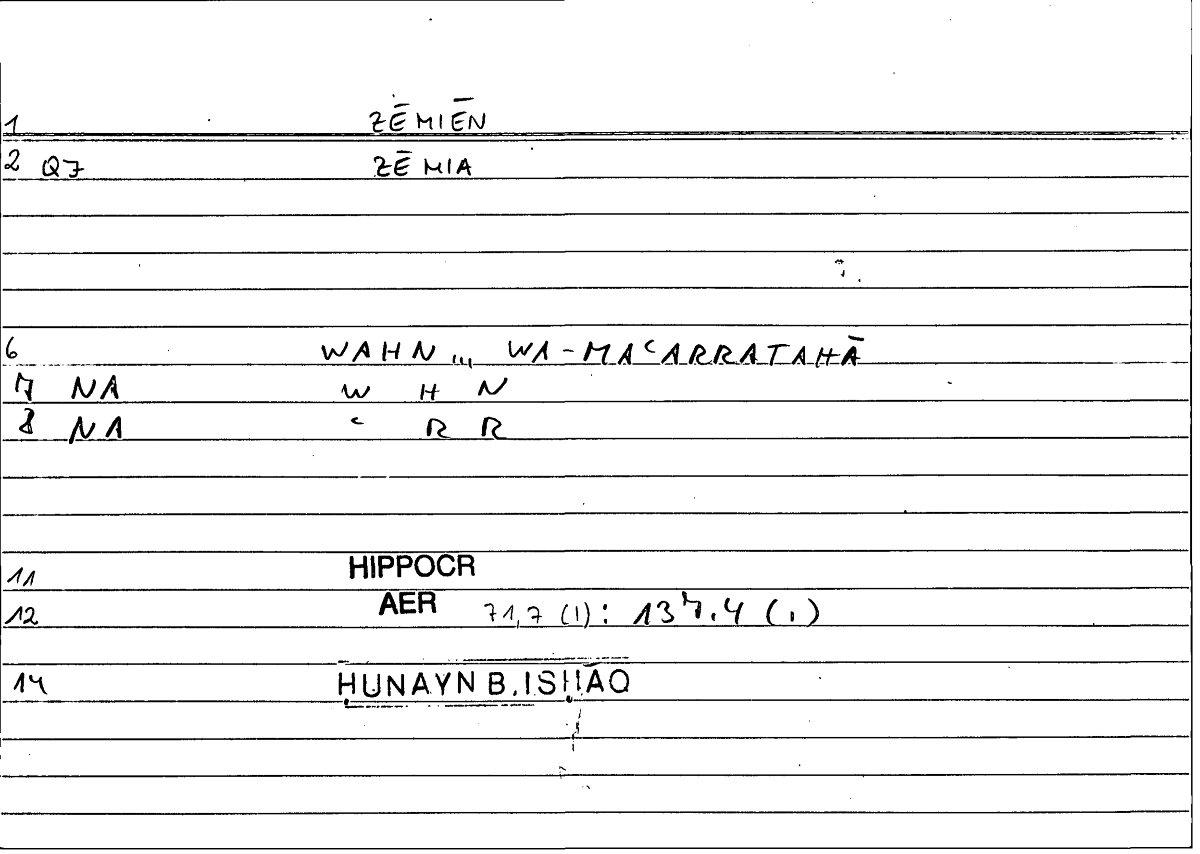 1 ZĒMIĒN
2 Q7 ZĒMIA
6 WAHN ,,, WA-MAʿARRATAHĀ
7 NA W H N
8 NA ʿ R R
11 HIPPOCR
12 AER 71,7 (1): 137.4 (.)
14 ḤUNAYN B. ISḤĀQ